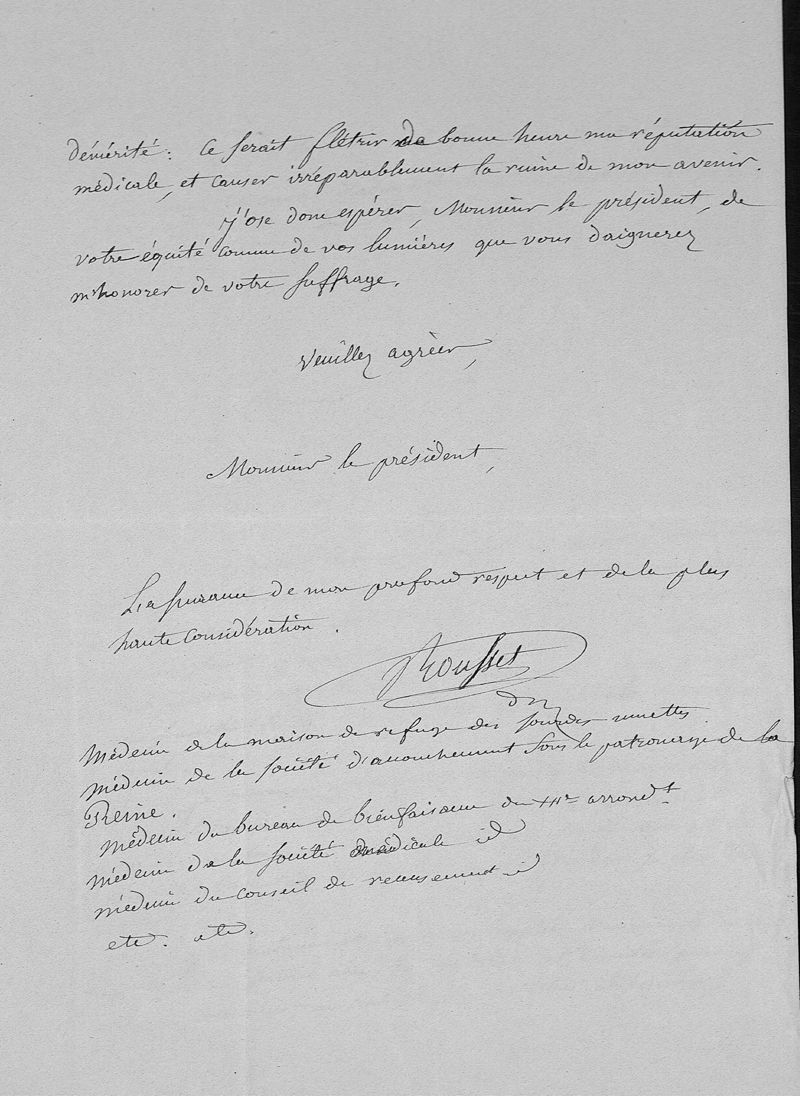 démérité: Ce serait flétrir de bonne heure ma réputation
médicale, et causer irréparablement la ruine de mon avenir.
J'ose donc espérer, Monsieur le président, de
votre équité comme de vos lumières que vous daignerez
m'honorer de votre suffrage.
Veuillez agréer,
Monsieur le président,
L'assurance de mon profond respect et de la plus
haute considération.
Rousset
dm
Médecin de la maison de refuge des sourdes muettes.
médecin de la société d'accouchement sous le patronage de la
Reine.
médecin du bureau de bienfaisance du XIIe arrondt
médecin de la société médicale id
médecin du conseil de recensement id
etc. etc.